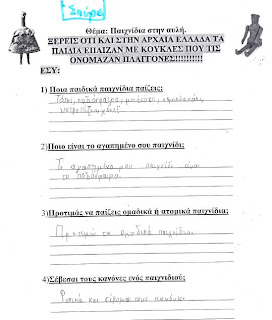 Σπύρο
Θέμα: Παιχνίδια στην αυλή.
ΞΕΡΕΙΣ ΟΤΙ ΚΑΙ ΣΤΗΝ ΑΡΧΑΙΑ ΕΛΛΑΔΑ ΤΑ
ΠΑΙΔΙΑ ΕΠΑΙΖΑΝ ΜΕ ΚΟΥΚΛΕΣ ΠΟΥ ΤΙΣ
ΟΝΟΜΑΖΑΝ ΠΛΑΓΓΟΝΕΣ!!!!!!!!!!!
ΕΣΥ:
1) Ποια παιδικά παιχνίδια παίζεις;
ποδόσφαιρο, μπάσκετ,
2)Ποιο είναι το αγαπημένο σου παιχνίδι;
Το αγαπημένο μου παιχνίδι είναι
το ποδόσφαιρο.
3)Προτιμάς να παίζεις ομαδικά ή ατομικά παιχνίδια;
Προτιμώ τα ομαδικά παιχνίδια.
4)Σέβεσαι τους κανόνες ενός παιχνιδιού;
και σέβομαι τους κανόνες.